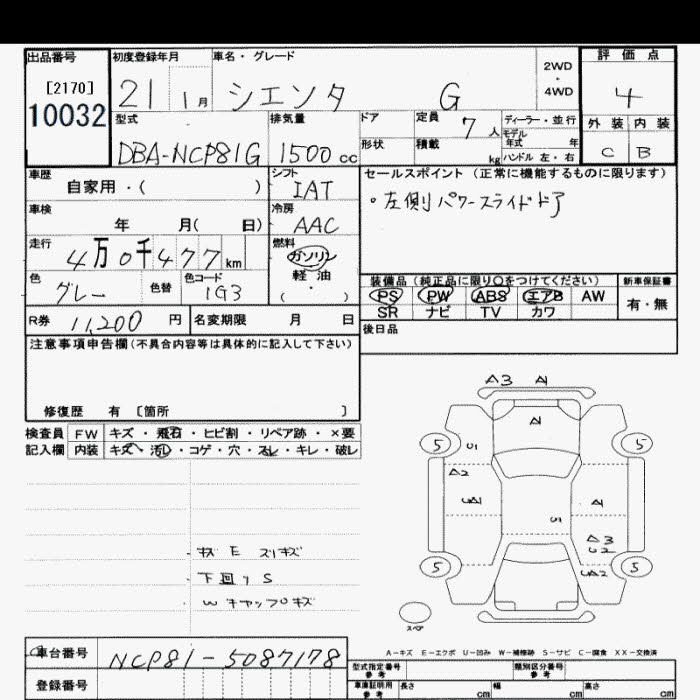 出品番号 初度登録年月 車名・グレード 評価点
[2170] 10032
21 1月 シエンタ G 2WD・4WD 4
型式 排気量 ドア 定員 7人 ディーラー・並行 外装 内装
DBA-NCP81G 1500cc 形状 積載 kg モデル年式 年 ハンドル 左・右 C B
車歴 シフト セールスポイント (正常に機能するものに限ります)
自家用・( ) IAT ・左側パワースライドドア
車検 冷房
年 月( 日) AAC
走行 燃料
4万0千477km ガソリン
色 色替 色コード 軽油 装備品 (純正品に限り○をつけてください) 新車保証書
グレー 1G3 ( ・ ) PS PW ABS エアB AW 有・無
SR ナビ TV カワ
R券 11,200円 名変期限 月 日 後日品
注意事項申告欄(不具合内容等は具体的に記入して下さい)
修復歴 有 〔箇所 〕
検査員 FW キズ・飛石・ヒビ割・リペア跡・×要
記入欄 内装 キズ・汚レ・コゲ・穴・スレ・キレ・破レ
A3 A
A
5 5
A2
A
S
A3
5 5
スペア
キズ E スリキズ
下回り S
W キャップキズ
A-キズ E-エクボ U-凹み W-補修跡 S-サビ C-腐食 XX-交換済
車台番号 NCP81-5087178
型式指定番号 参考 類別区分番号 参考
登録番号 車庫証明用 参考 長さ cm 幅 cm 高さ cm